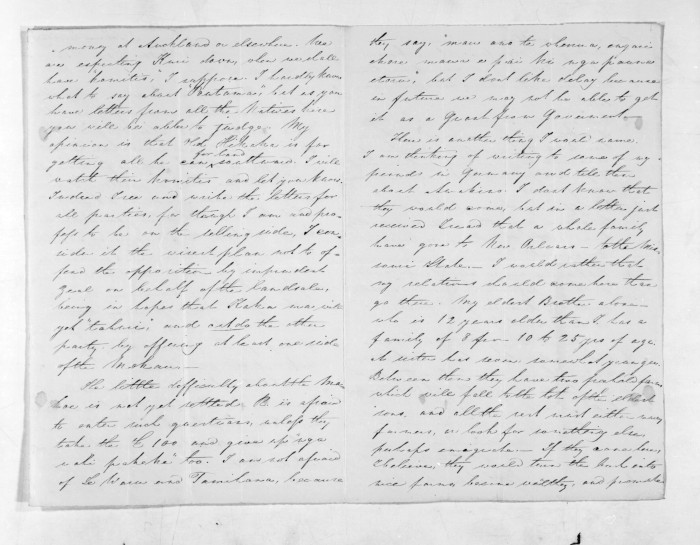 money at Auckland or elsewhere. We
are expecting Kuini down, when we shall
have "Komitis", I suppose. I hardly know
what to say about "Pootamai" but as you
have letters from all the Natives here
you will be able to judge. My
opinion is that Old Hikaka is for
getting all he can, for land southward. I will
watch their Komities and let you know.
Indeed I see and write the letters for
all parties, for though I am and pro-
fess to be on the selling side, I con-
sider it the wisest plan not to of-
fend the opposition by imprudent
zeal on behalf of the landsale,
being in hopes that Kaka may, ink
yet "tahuri", and outdo the other
party by offering at least one side
of the Mokau.
The little difficulty about the Ma-
hoe is not yet settled. B. is afraid
to enter such questions, unless they
take the £100 and give up "nga
utu pakeha" too. I am not afraid
of Te Waru and Tamihana, because
they say, "mau ano te whenua,
but I dont like delay because
in future we may not be able to get
it as a Grant from Government.
There is another thing I will name.
I am thinking of writing to some of my
friends in Germany and tell them
about Awakino. I dont know that
they would come, but in a letter just
received I read that a whole family
have gone to New Orleans — to the Mis-
souri State. I would rather that
my relations should come here than
go there. My eldest Brother alone
who is 12 years older than I has a
family of 8 from 10 to 25 yrs of age.
A sister has seven somewhat younger.
Between them they have two freehold farms
which will fall to the lot of the eldest
sons, and all the rest must either
farmers, or look for something else,
perhaps emigrate. If they come here,
I believe, they would turn the bush into
nice farms, become wealthy and promote